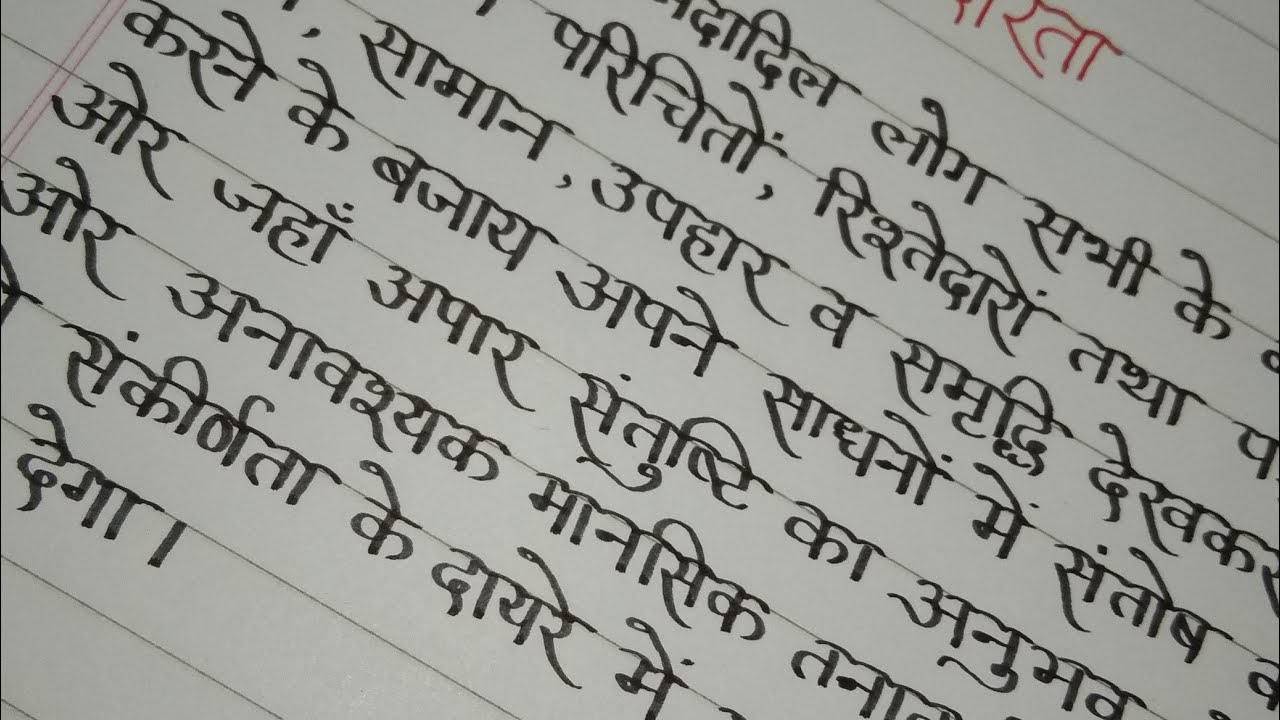 लोग सभी के
परिचितों, रिश्तेदारों तथा
, सामान, उपहार व समृद्धि देखकर
करने के बजाय अपने साधनों में संतोष
ओर जहाँ अपार संतुष्टि का अनुभव
ओर अनावश्यक मानसिक तनाव
संकीर्णता के दायरे में
देगा।